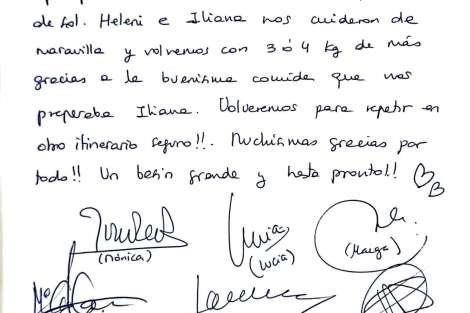 de sol. Heleni e Iliana nos cuidaron de
maravilla y volvemos con 3 ó 4 kg de más
gracias a la buenísima comida que nos
preparaba Iliana. Volveremos para repetir en
otro itinerario seguro!!. Muchísimas gracias por
todo!! Un besín grande y hasta pronto!!
(Mónica) (Lucía) (Marga)